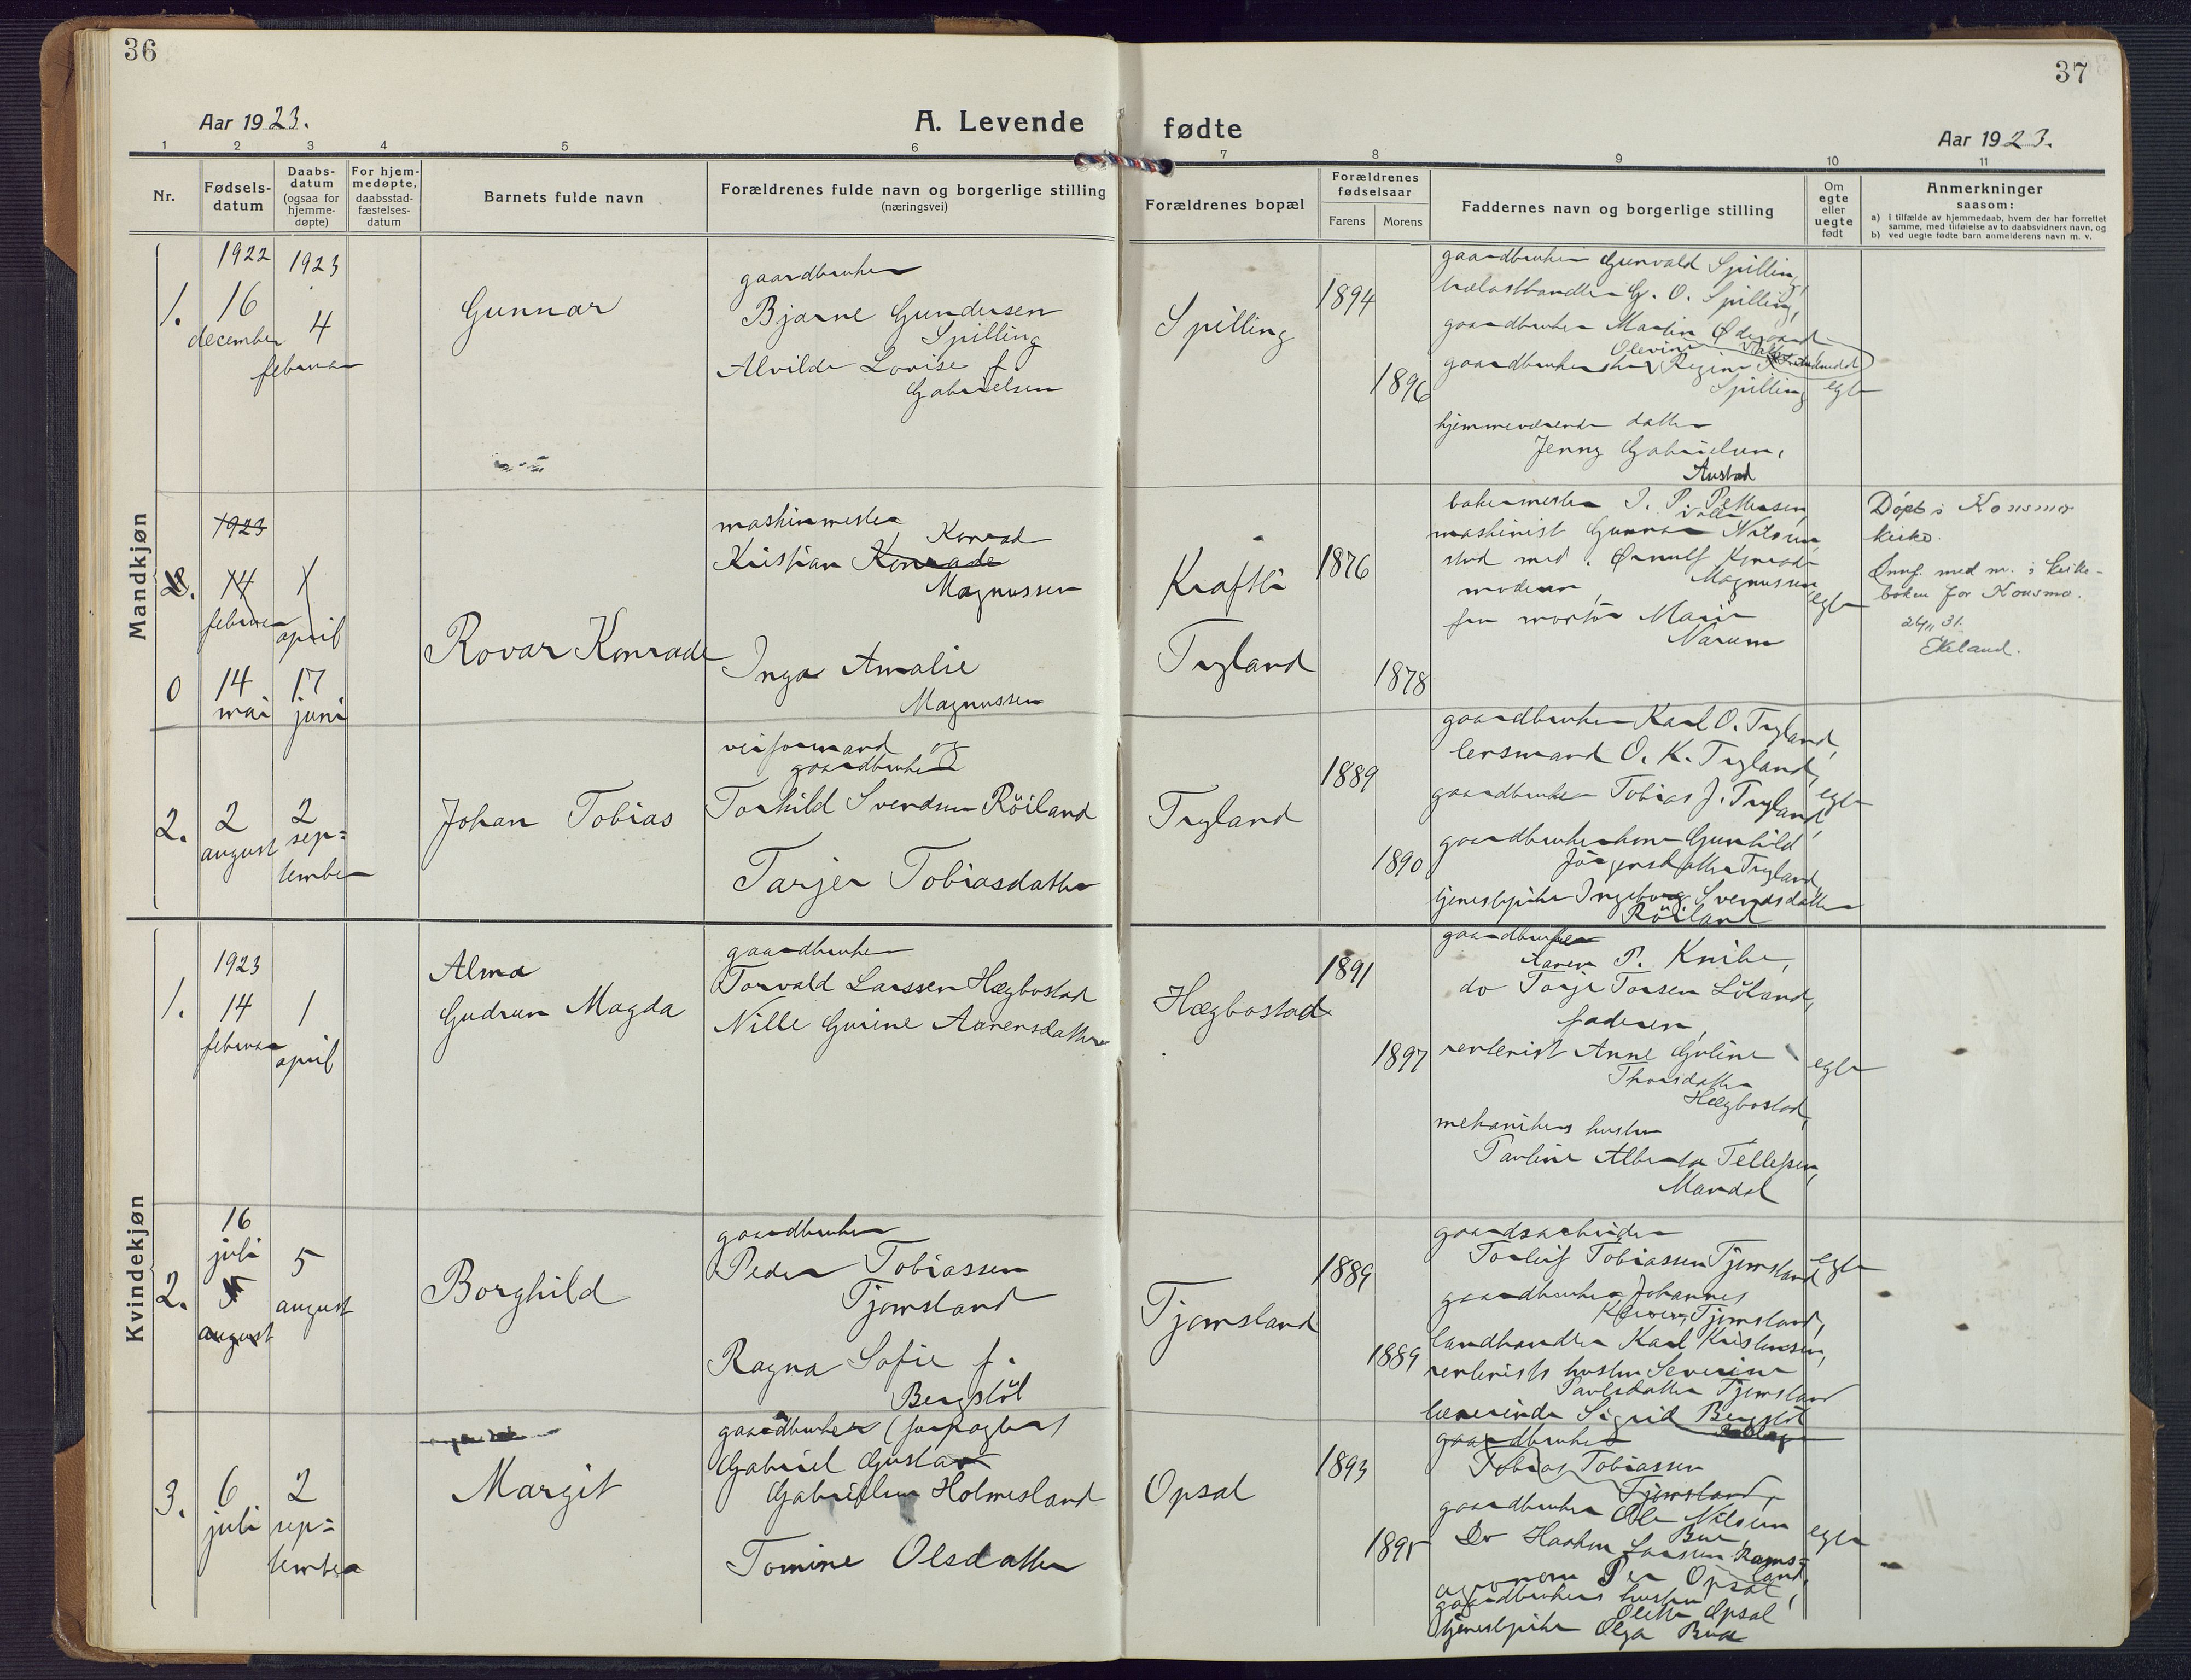 36
Aar 1923.
A. Levende
1 2 3 4 5 6
Nr.
Fødsels-
datum
Daabs-
datum
(ogsaa for
hjemme-
døpte)
For hjem-
medøpte,
daabsstad-
fæstelses-
datum
Barnets fulde navn
Forældrenes fulde navn og borgerlige stilling
(næringsvei)
Mandkjøn
1.
1922
16
december
1923
4
februar
Gunnar
gaardbruker
Bjarne Gundersen
Spilling
Alvilde Lovise f.
Gabrielsen
2.
1923
14
februar
1
april
0
14
mai
17
juni
Rovar Konrade
maskinmester
Konrad
Kristian Konrade
Magnussen
Inga Amalie
Magnussen
2.
2
august
2
sep=
tember
Johan Tobias
veiformand og
gaardbruker
Torkild Svendsen Röiland
Tarjer Tobiasdatter
Kvindekjøn
1.
1923
14
februar
1
april
Alma
Gudrun Magda
gaardbruker
Torvald Larssen Hægbostad
Nille Gurine Aanensdatter
2.
16
juli
5
august
5
august
Borghild
gaardbruker
Peder Tobiassen
Tjomsland
Ragna Sofie f.
Bergstöl
3.
6
juli
2
sep=
tember
Margit
gaardbruker (forpagter)
Gabriel Gustav
Gabrielsen Holmesland
Tomine Olsdatter
37
fødte
Aar 1923.
7 8 9 10 11
Forældrenes bopæl
Forældrenes
fødselsaar
Farens Morens
Faddernes navn og borgerlige stilling
Om
egte
eller
uegte
født
Anmerkninger
saasom:
a) i tilfælde av hjemmedaab, hvem der har forrettet
samme, med tilføielse av to daabsvidners navn, og
b) ved uegte fødte barn anmelderens navn m. v.
Spilling
1894
1896
gaardbruker Gunvald Spilling,
trælasthandler G. O. Spilling,
gaardbruker Martin Ødegaard
Olevine
gaardbrukerske Regine
Spilling
hjemmeværende datter
Jenny Gabrielsen,
Austad
egte
Kraftli
Tryland
1876
1878
bakermester I. P. Pettersen,
Valle
maskinist Gunnar Nilsen,
stud med. Ørnulf Konrade
Magnussen
moderen,
fru Marie
Narum
egte
Döpt i Konsmo
kirke.
Ønnf. med m. i kirke-
boken for Konsmo.
24/11 31.
Ekeland.
Tryland
1889
1890
gaardbruker Karl O. Tryland,
lensmand O. K. Tryland,
gaardbruker Tobias J. Tryland,
gaardbrukerkone Gunhild
Jörgensdatter Tryland
tjenestepike Ingeborg Svendsdatter
Röiland
egte
Hægbostad
1891
1897
gaardbruker
Aanen P. Knibe,
do Torje Torsen Löland,
faderen,
rentenist Anne Goline
Thorsdatter
Hægbostad,
mekanikers hustru
Pauline Alberta Tellefsen,
Mandal
egte
Tjomsland
1889
1889
gaardsarbeider
Torleif Tobiassen Tjomsland
gaardbruker Johannes
Tjomsland,
landhandler Karl Kristensen,
rentenists hustru Severine
Paulsdatter Tjomsland
lærerinde Sigrid Bergstöl
egte
Opsal
1893
1895
gaardbruker
Tobias Tobiassen
Tjomsland,
gaardbruker Ole Nilsen
Bue,
Do Haakon Larsen Rams=
land,
agronom Per Opsal,
gaardbrukers hustru
Olette Opsal
tjenestepike Olga Bue
egte